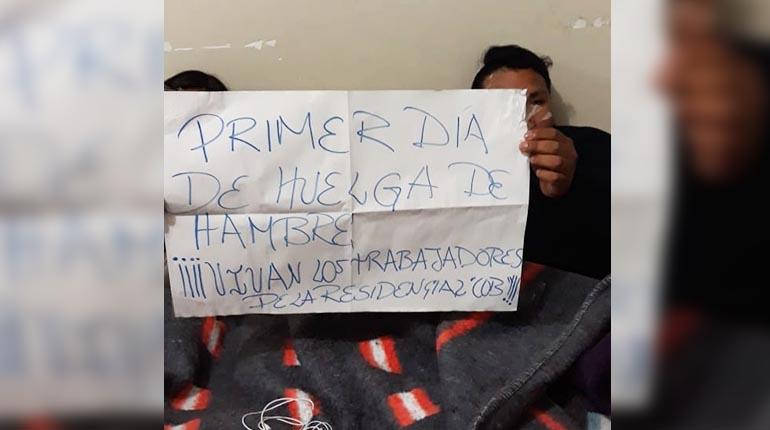 PRIMER DÍA
DE HUELGA DE
HAMBRE
¡¡¡¡¡VIVAN LOS TRABAJADORES
DE LA RESIDENCIAL "COB"!!!